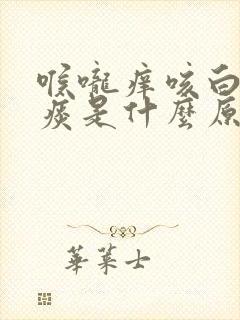 喉嚨痒咳白
痰是什麼原
華菓士